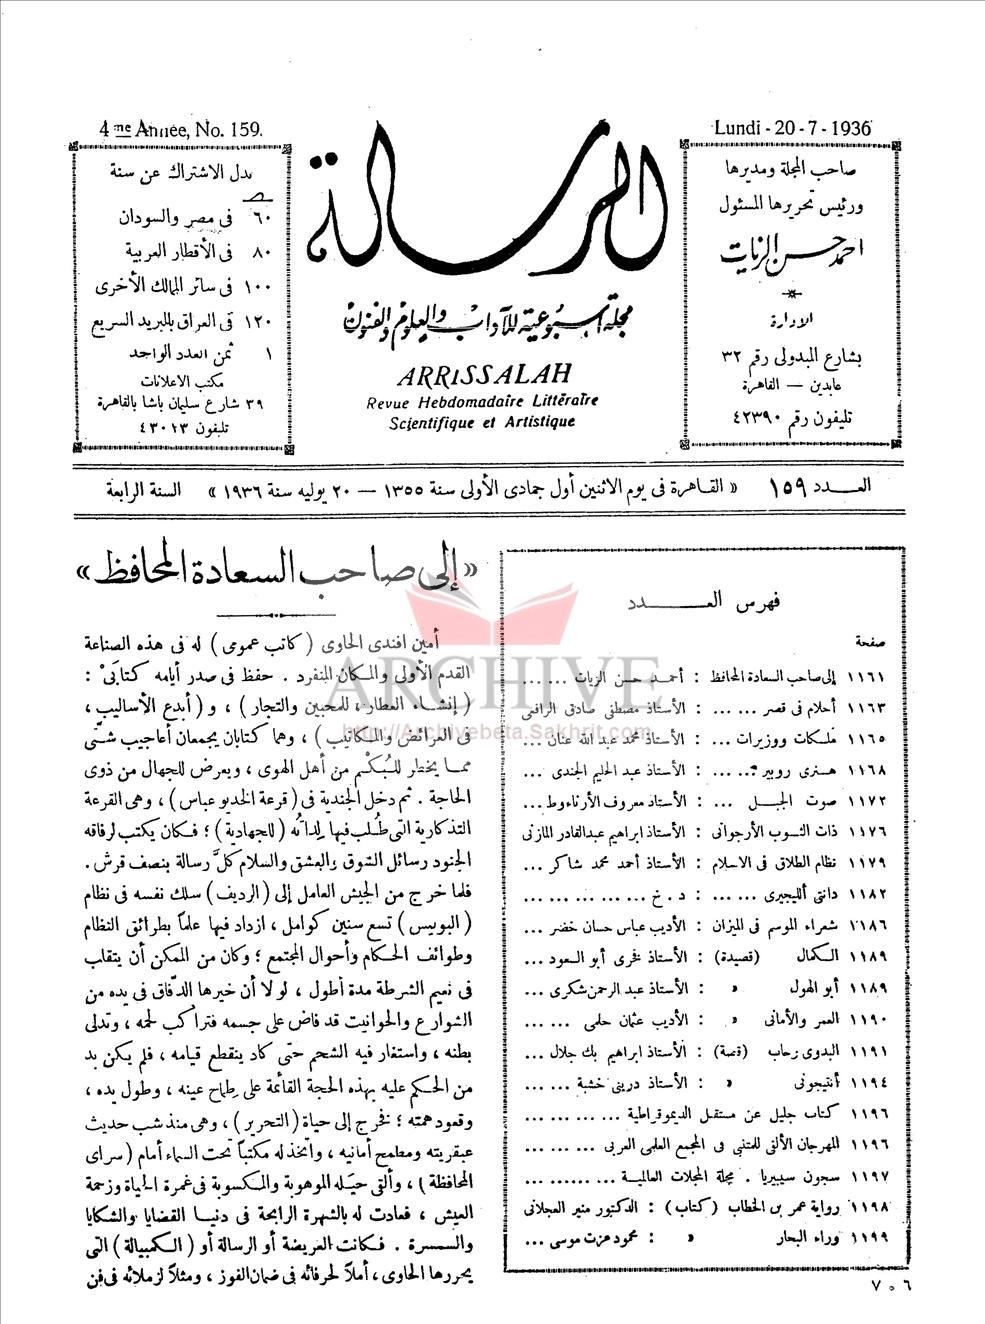 Lundi - 20 - 7 - 1936
صاحب المجلة ومديرها
ورئيس تحريرها المسئول
احمد حسن الزيات
الادارة
بشارع المبدولى رقم ٣٢
عابدين — القاهرة
تليفون رقم ٤٢٣٩٠
الرسالة
مجلة أسبوعية للآداب والعلوم والفنون
ARRISSALAH
Revue Hebdomadaire Littéraire
Scientifique et Artistique
4 me Année, No. 159.
بدل الاشتراك عن سنة
٦٠ فى مصر والسودان
٨٠ فى الأقطار العربية
١٠٠ فى سائر الممالك الأخرى
١٢٠ فى العراق بالبريد السريع
١ ثمن العدد الواحد
مكتب الاعلانات
٣٩ شارع سليمان باشا بالقاهرة
تليفون ٤٣٠١٣
العـــدد ١٥٩ « القاهرة فى يوم الاثنين أول جمادى الأولى سنة ١٣٥٥ — ٢٠ يوليه سنة ١٩٣٦ » السنة الرابعة
فهرس العـــدد
صفحة
١١٦١ إلى صاحب السعادة المحافظ : أحمد حسن الزيات ... ...
١١٦٣ أحلام فى قصر ... ... : الأستاذ مصطفى صادق الرافعى
١١٦٥ ملكات ووزيرات ... : الأستاذ محمد عبد الله عنان ...
١١٦٨ هنرى روبير ... ... : الأستاذ عبد الحليم الجندى ...
١١٧٢ صوت الجبــل ... : الأستاذ معروف الأرناءوط ...
١١٧٦ ذات الثـوب الأرجوانى : الأستاذ ابراهيم عبدالقادر المازنى
١١٧٩ نظام الطلاق فى الاسلام : الأستاذ أحمد محمد شاكر ...
١١٨٢ دانتى ألليجيرى ... ... : د . خ ... ... ... ... ...
١١٨٦ شعراء الموسم فى الميزان : الأديب عباس حسان خضر ...
١١٨٩ الـكمال (قصيدة) : الأستاذ فخرى أبو السعود ...
١١٨٩ أبو الهول » : الأستاذ عبد الرحمن شكرى ...
١١٩٠ العمر والأمانى » : الأديب عثمان حلمى ... ...
١١٩١ البدوى رحاب (قصة) : الأستاذ ابراهيم بك جلال ...
١١٩٤ أنتيجونى » : الأستاذ درينى خشبة ... ...
١١٩٦ كتاب جليل عن مستقبل الديموقراطية ... ... ... ...
١١٩٦ المهرجان الألفى للمتنبى فى المجمع العلمى العربى ... ... ...
١١٩٧ سجون سيبيريا . مجلة المجلات العالميـة ... ... ... ...
١١٩٨ رواية عمر بن الخطاب (كتاب) : الدكتور منير العجلانى
١١٩٩ وراء البحار » : محمود عزت موسى ...
٧٠٦
« إلى صاحب السعادة المحافظ »
أمين افندى الحاوى (كاتب عمومى) له فى هذه الصناعة
القدم الأولى والمكان المنفرد . حفظ فى صدر أيامه كتابَىْ :
(إنشاء العطار ، للمحبين والتجار) ، و (أبدع الأساليب ،
فى العرائض والمكاتيب) ، وهما كتابان يجمعان أعاجيب شتّى
مما يخطر للبُكْم من أهل الهوى ، ويعرض للجهال من ذوى
الحاجة . ثم دخل الجندية فى (قرعة الخديو عباس) ، وهى القرعة
التذكارية التى طُلب فيها لِداتُه (للجهادية) ؛ فكان يكتب لرفاقه
الجنود رسائل الشوق والعشق والسلام كلَّ رسالة بنصف قرش .
فلما خرج من الجيش العامل إلى (الرديف) سلك نفسه فى نظام
(البوليس) تسع سنين كوامل ، ازداد فيها علماً بطرائق النظام
وطوائف الحكام وأحوال المجتمع ؛ وكان من الممكن أن يتقلب
فى نعيم الشرطة مدة أطول ، لولا أن خيرها الدفّاق فى يده من
الشوارع والحوانيت قد فاض على جسمه فتراكب لحمه ، وتدلى
بطنه ، واستفار فيه الشحم حتى كاد ينقطع قيامه ، فلم يكن بد
من الحكم عليه بهذه الحجة القائمة على طماح عينه ، وطول يده ،
وقعود همته ؛ فخرج إلى حياة (التحرير) ، وهى منذ شب حديث
عبقريته ومطمح أمانيه ، واتخذ له مكتباً تحت السماء أمام (سراى
المحافظة) ، وألقى حيَله الموهوبة والمكسوبة فى غمرة الحياة وزحمة
العيش ، فعادت له بالشهرة الرابحة فى دنيا القضايا والشكايا
والسمسرة . فكانت العريضة أو الرسالة أو (الكمبيالة) التى
يحررها الحاوى ، أملاً لحرفائه فى ضمان الفوز ، ومثلاً لزملائه فى فن
ARCHIVE
http://Archivebeta.Sakhrit.com